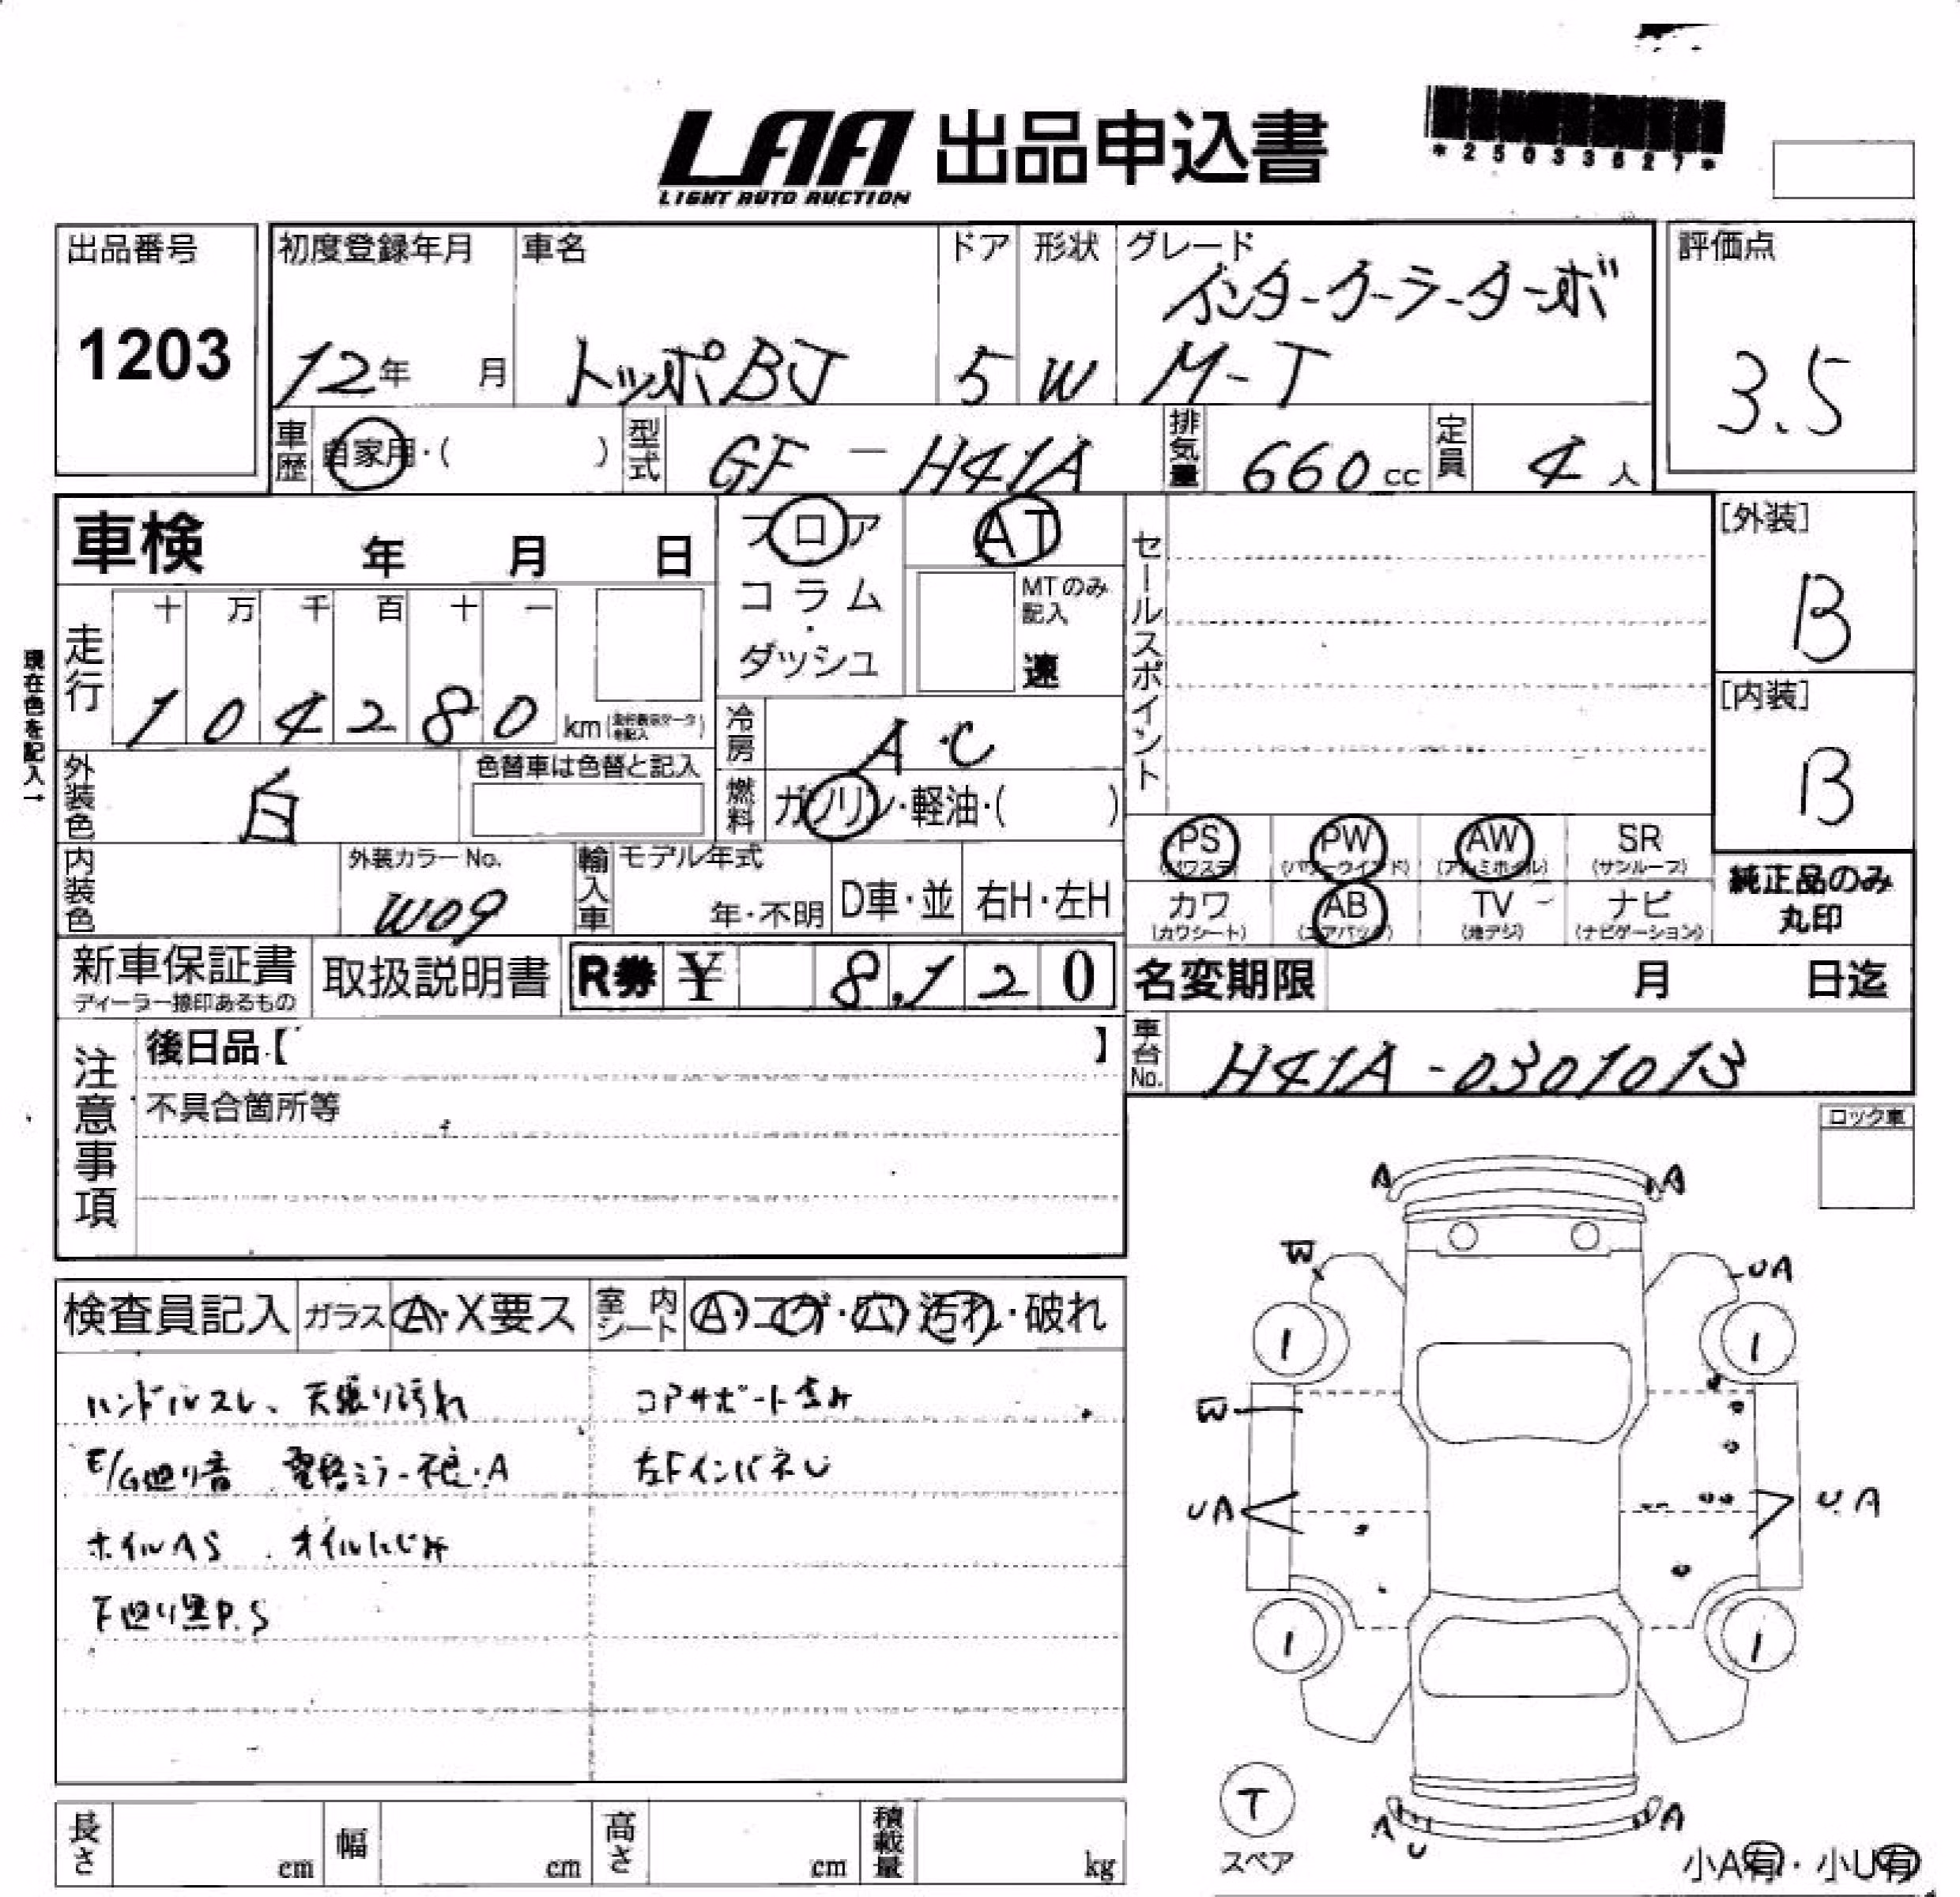 LAA 出品申込書
LIGHT AUTO AUCTION
*25033627*
出品番号
1203
初度登録年月
12年 月
車名
トッポBJ
ドア
5
形状
W
グレード
インタークーラーターボ
M-T
評価点
3.5
車歴
自家用・( )
型式
GF-H41A
排気量
660cc
定員
4人
車検 年 月 日
フロア
コラム
・
ダッシュ
AT
MTのみ
記入
速
セールスポイント
[外装]
B
[内装]
B
現在色を記入→
走行
十 万 千 百 十 一
1 0 4 2 8 0 km
冷房
A・C
燃料
ガソリン・軽油・( )
外装色
白
色替車は色替と記入
内装色
外装カラーNo.
W09
輸入車
モデル年式
年・不明
D車・並
右H・左H
PS
(パワステ)
PW
(パワーウインド)
AW
(アルミホイル)
SR
(サンルーフ)
カワ
(カワシート)
AB
(エアバッグ)
TV
(地デジ)
ナビ
(ナビゲーション)
純正品のみ
丸印
新車保証書
ディーラー捺印あるもの
取扱説明書
R券 ¥ 8,120
名変期限 月 日迄
車台No.
H41A-0301013
注意事項
後日品【 】
不具合箇所等
ロック車
検査員記入
ガラス
A・X要ス
室内シート
A・コゲ・穴・汚れ・破れ
ハンドルスレ、天張り汚れ
コアサポート歪み
E/G廻り音、電格ミラー不良・A
左FインパネU
ホイルAS、オイルにじみ
下廻り黒P.S
A A
W UA
1 1
W
UA UA
1 1
T
スペア
A U A
小A有・小U有
長さ cm
幅 cm
高さ cm
積載量 kg